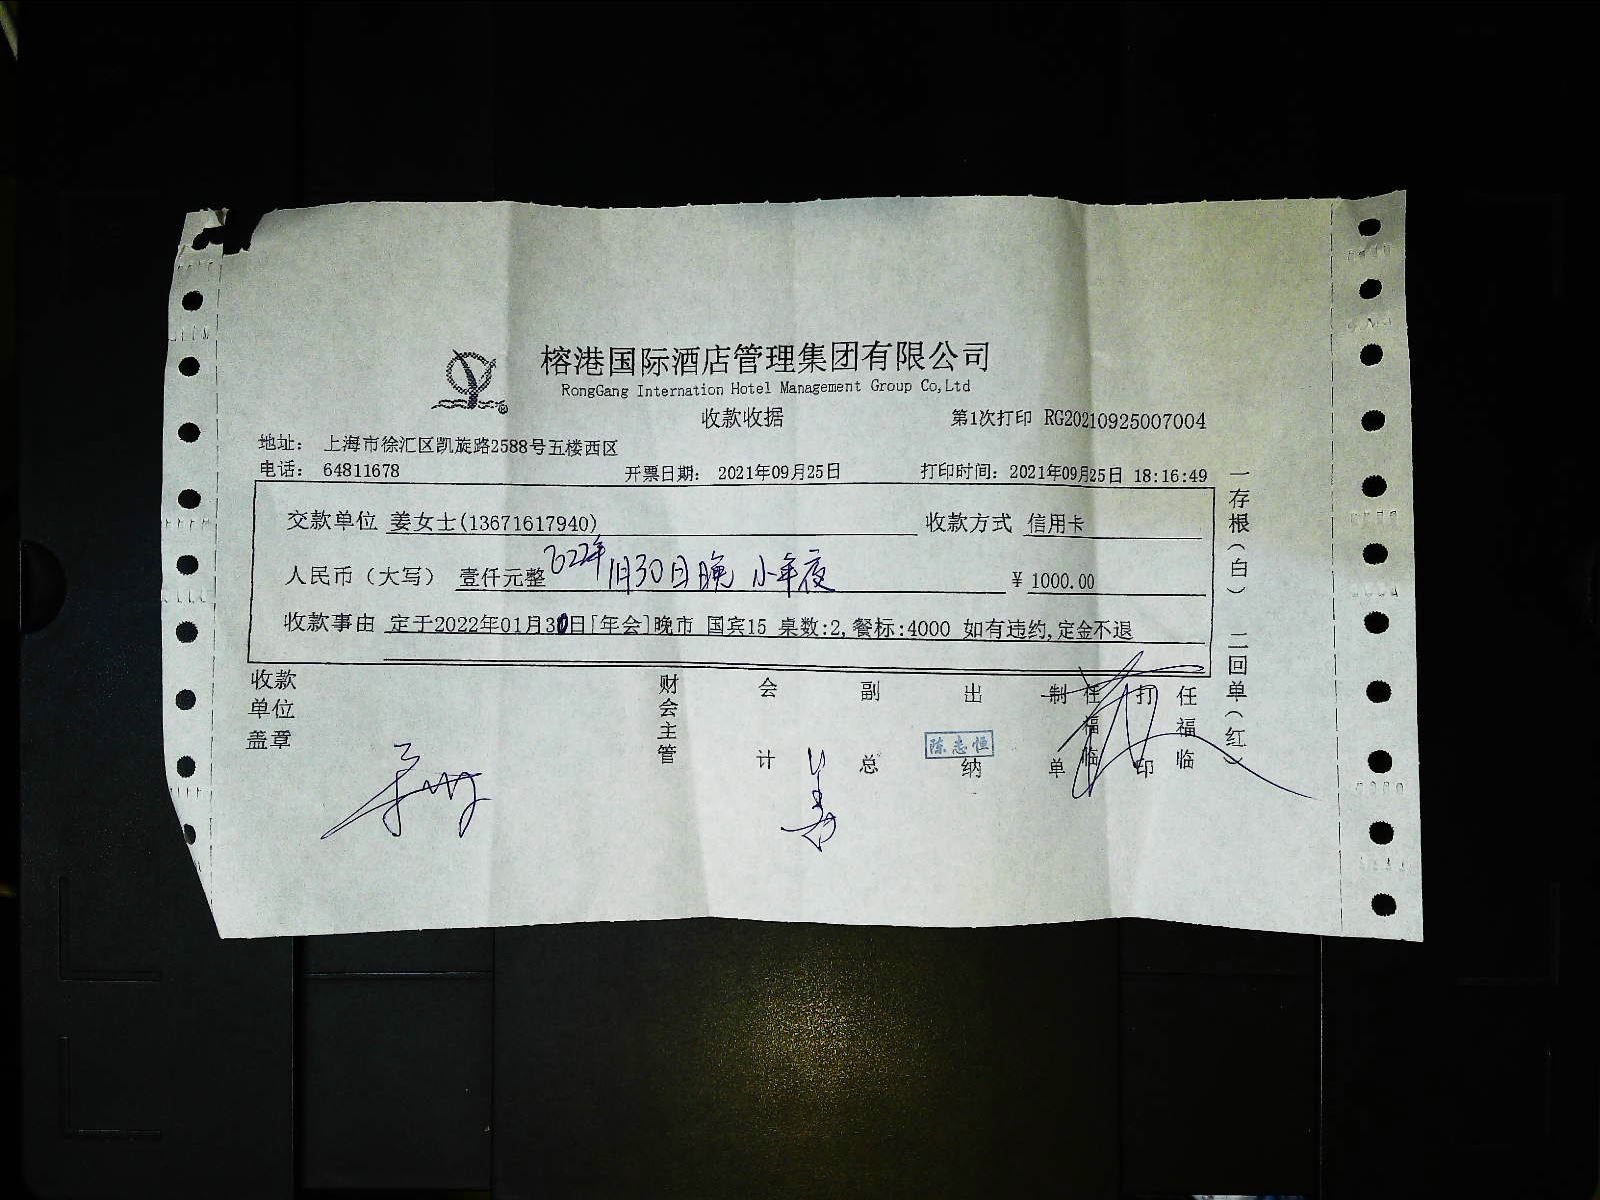 榕港国际酒店管理集团有限公司
RongGang Internation Hotel Management Group Co,Ltd
收款收据 第1次打印 RG20210925007004
地址： 上海市徐汇区凯旋路2588号五楼西区
电话： 64811678 开票日期： 2021年09月25日 打印时间： 2021年09月25日 18:16:49
交款单位 姜女士(13671617940) 收款方式 信用卡
人民币（大写） 壹仟元整 2022年1月30日晚 小年夜 ¥ 1000.00
收款事由 定于2022年01月30日[年会]晚市 国宾15 桌数:2,餐标:4000 如有违约,定金不退
收款单位盖章 财会主管 会计 副总 出纳 陈志恒 制单 任福临 打印 任福临
一存根（白） 二回单（红）